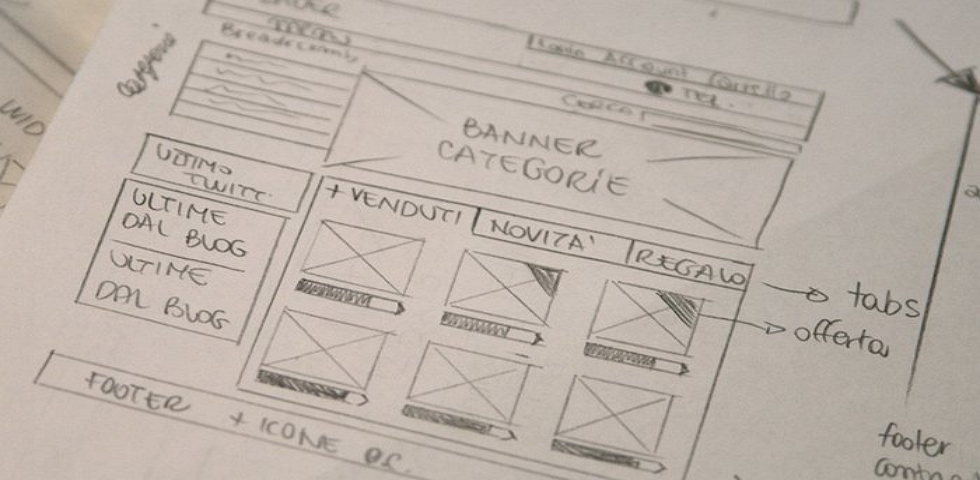 Breadcrumb
Login Account Carrello
TEL.
CERCA
BANNER
CATEGORIE
ULTIMO
TWITT.
ULTIME
DAL BLOG
ULTIME
DAL BLOG
+ VENDUTI
NOVITA'
REGALO
tabs
offerta
FOOTER + ICONE
footer